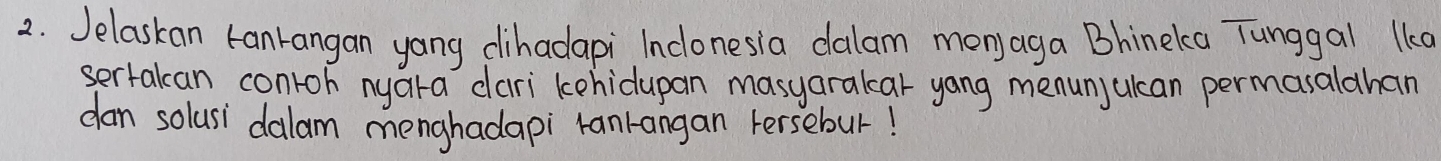 2. Jelaskan tantangan yang dihadapi Indonesia dalam menjaga Bhineka Tunggal Ika
sertakan contoh nyata dari kehidupan masyarakat yang menunjukan permasalahan
dan solusi dalam menghadapi tantangan tersebut!